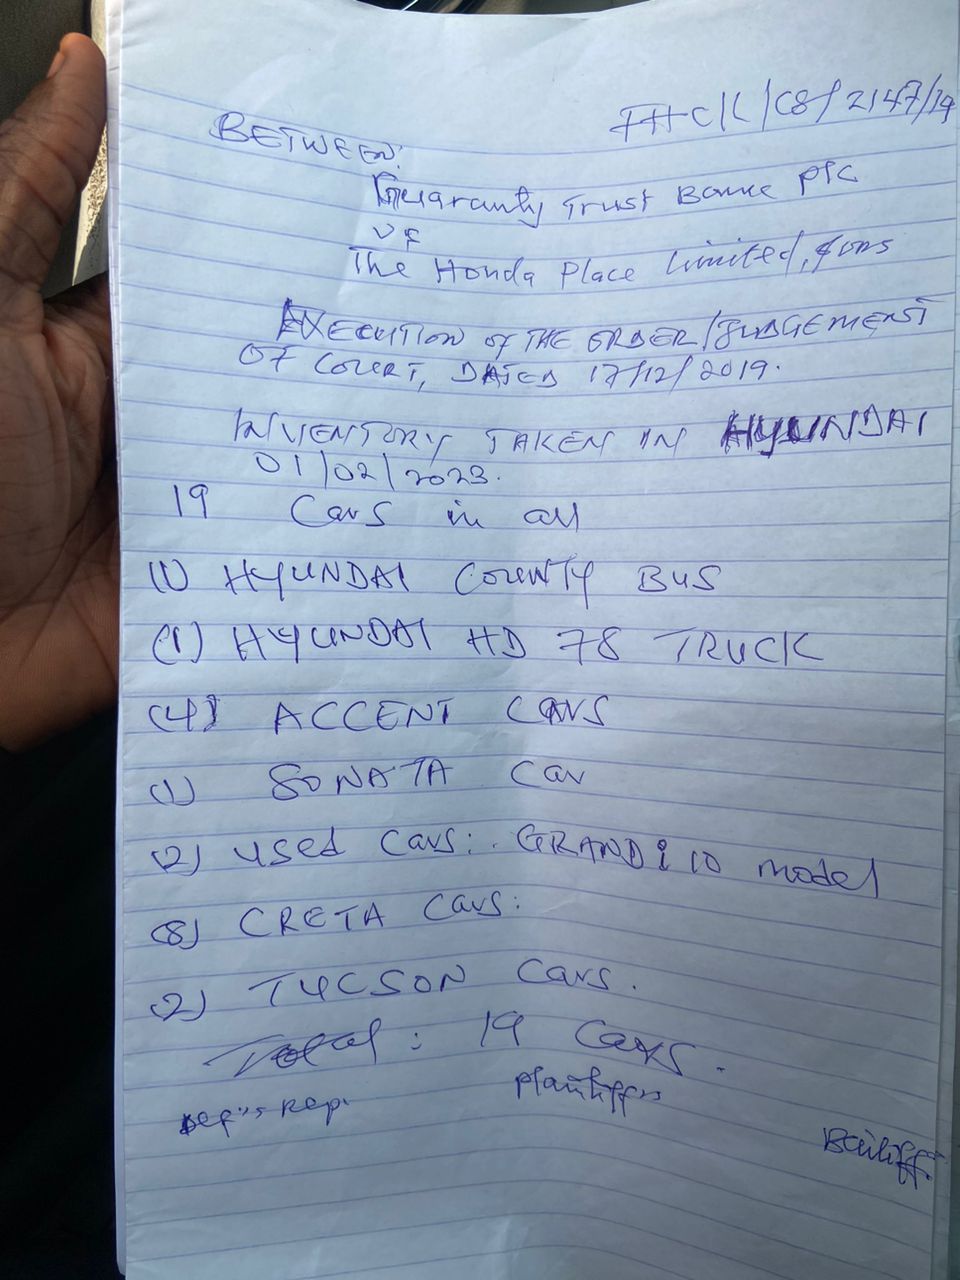 FHC/L/CS/2147/19
BETWEEN:
Guaranty Trust Bank plc
vs
The Honda Place Limited, & ors
EXECUTION OF THE ORDER/JUDGEMENT
OF COURT, DATED 17/12/2019.
INVENTORY TAKEN IN HYUNDAI
01/02/2023.
19 Cars in all
(1) HYUNDAI COUNTY BUS
(1) HYUNDAI HD 78 TRUCK
(4) ACCENT CARS
(1) SONATA Car
(2) used cars: GRAND i 10 model
(8) CRETA Cars:
(2) TUCSON Cars.
Total: 19 Cars.
Def's Rep. plantiffs
Bailiff